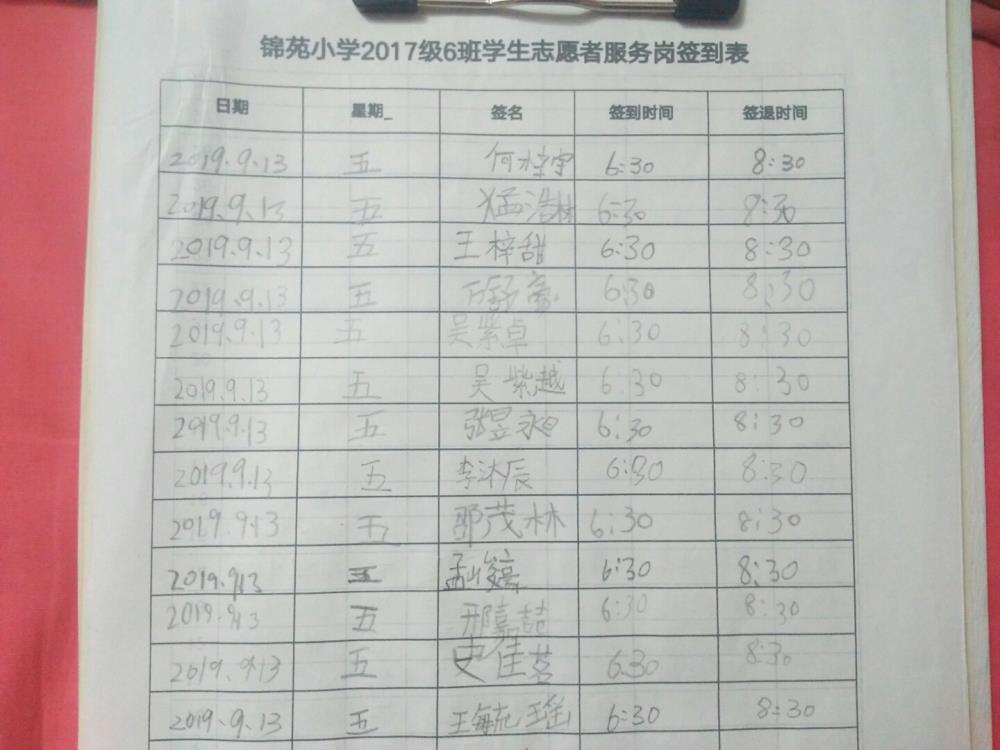 锦苑小学2017级6班学生志愿者服务岗签到表
日期 星期_ 签名 签到时间 签退时间
2019.9.13 五 何 宇 6:30 8:30
2019.9.13 五 孟浩林 6:30 8:30
2019.9.13 五 王梓甜 6:30 8:30
2019.9.13 五 6:30 8:30
2019.9.13 五 吴紫卓 6:30 8:30
2019.9.13 五 吴紫越 6:30 8:30
2019.9.13 五 张昱 6:30 8:30
2019.9.13 五 李沐辰 6:30 8:30
2019.9.13 五 茂林 6:30 8:30
2019.9.13 五 孟 6:30 8:30
2019.9.13 五 邢嘉喆 6:30 8:30
2019.9.13 五 史佳茗 6:30 8:30
2019.9.13 五 王 6:30 8:30